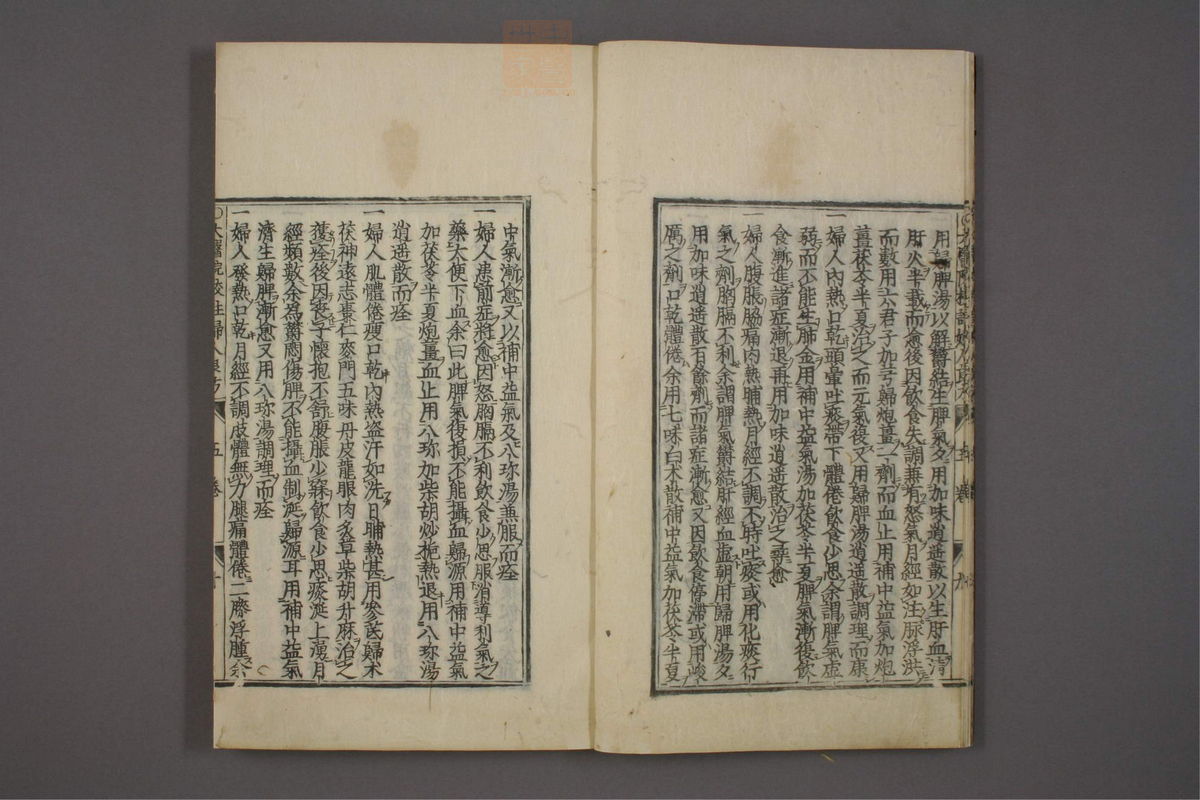 用歸脾湯以解欝結生脾氣夕用加味逍遥散以生肝血清
肝火半載而愈後因飲食失調兼有怒氣月經如注脉浮洪
而數用六君子加芎歸炮薑一劑而血止用補中益氣加炮
薑茯苓半夏治之而元氣復又用歸脾湯逍遥散調理而康
一婦人內熱口乾頭暈吐痰帶下體倦飲食少思余謂脾氣虛
弱而不能生肺金用補中益氣湯加茯苓半夏脾氣漸復飲
食漸進諸症漸退再用加味逍遥散治之尋愈
一婦人腹脹脇痛內熱晡熱月經不調不時吐痰或用化痰行
氣之劑胸膈不利余謂脾氣欝結肝經血虛朝用歸脾湯夕
用加味逍遥散百餘劑而諸症漸愈又因飲食停滯或用峻
厲之劑口乾體倦余用七味白木散補中益氣加茯苓半夏
中氣漸愈又以補中益氣及八珍湯兼服而痊
一婦人患前症將愈因怒胸膈不利飲食少思服消導利氣之
藥大便下血余曰此脾氣復損不能攝血歸源用補中益氣
加茯苓半夏炮薑血止用八珍加柴胡炒梔熱退用八珍湯
逍遥散而痊
一婦人肌體倦瘦口乾內熱盜汗如洗日晡熱甚用參芪歸术
茯神遠志棗仁麥門五味丹皮龍眼肉炙草柴胡升麻治之
獲痊後因喪子懷抱不舒腹脹少寐飲食少思痰涎上湧月
經頻數余爲欝悶傷脾不能攝血制涎歸源耳用補中益氣
濟生歸脾漸愈又用八珍湯調理而痊
一婦人發熱口乾月經不調皮體無力腿痛體倦二膝浮腫余
太醫院校註婦人良方 五卷 十